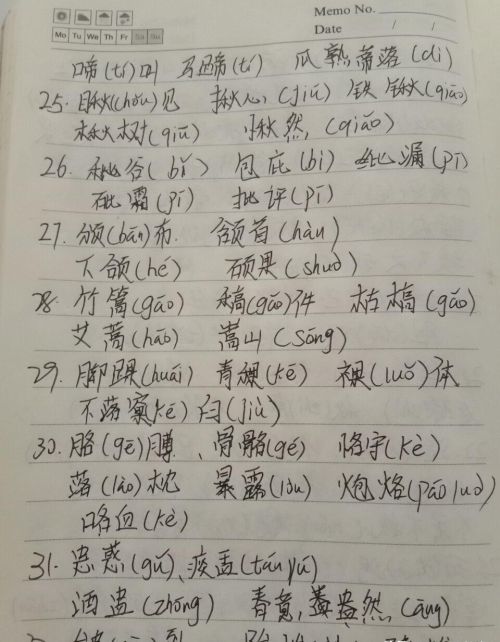 Memo No.
Date / /
Mo Tu We Th Fr Sa Su
啼(tí)叫 马蹄(tí) 瓜熟蒂落(dì)
25. 瞅(chǒu)见 揪心(jiū) 铁锹(qiāo)
楸树(qiū) 愀然(qiǎo)
26. 秕谷(bǐ) 包庇(bì) 纰漏(pī)
砒霜(pī) 批评(pī)
27. 颁(bān)布 颔首(hàn)
下颌(hé) 硕果(shuò)
28. 竹篙(gāo) 稿(gǎo)件 枯槁(gǎo)
艾蒿(hāo) 嵩山(sōng)
29. 脚踝(huái) 青稞(kē) 裸(luǒ)体
不落窠(kē)臼(jiù)
30. 胳(gē)膊、骨骼(gé) 恪守(kè)
落(lào)枕 暴露(lòu) 炮烙(páo luò)
咯血(kǎ)
31. 蛊惑(gǔ)、痰盂(tán yú)
酒盅(zhōng)